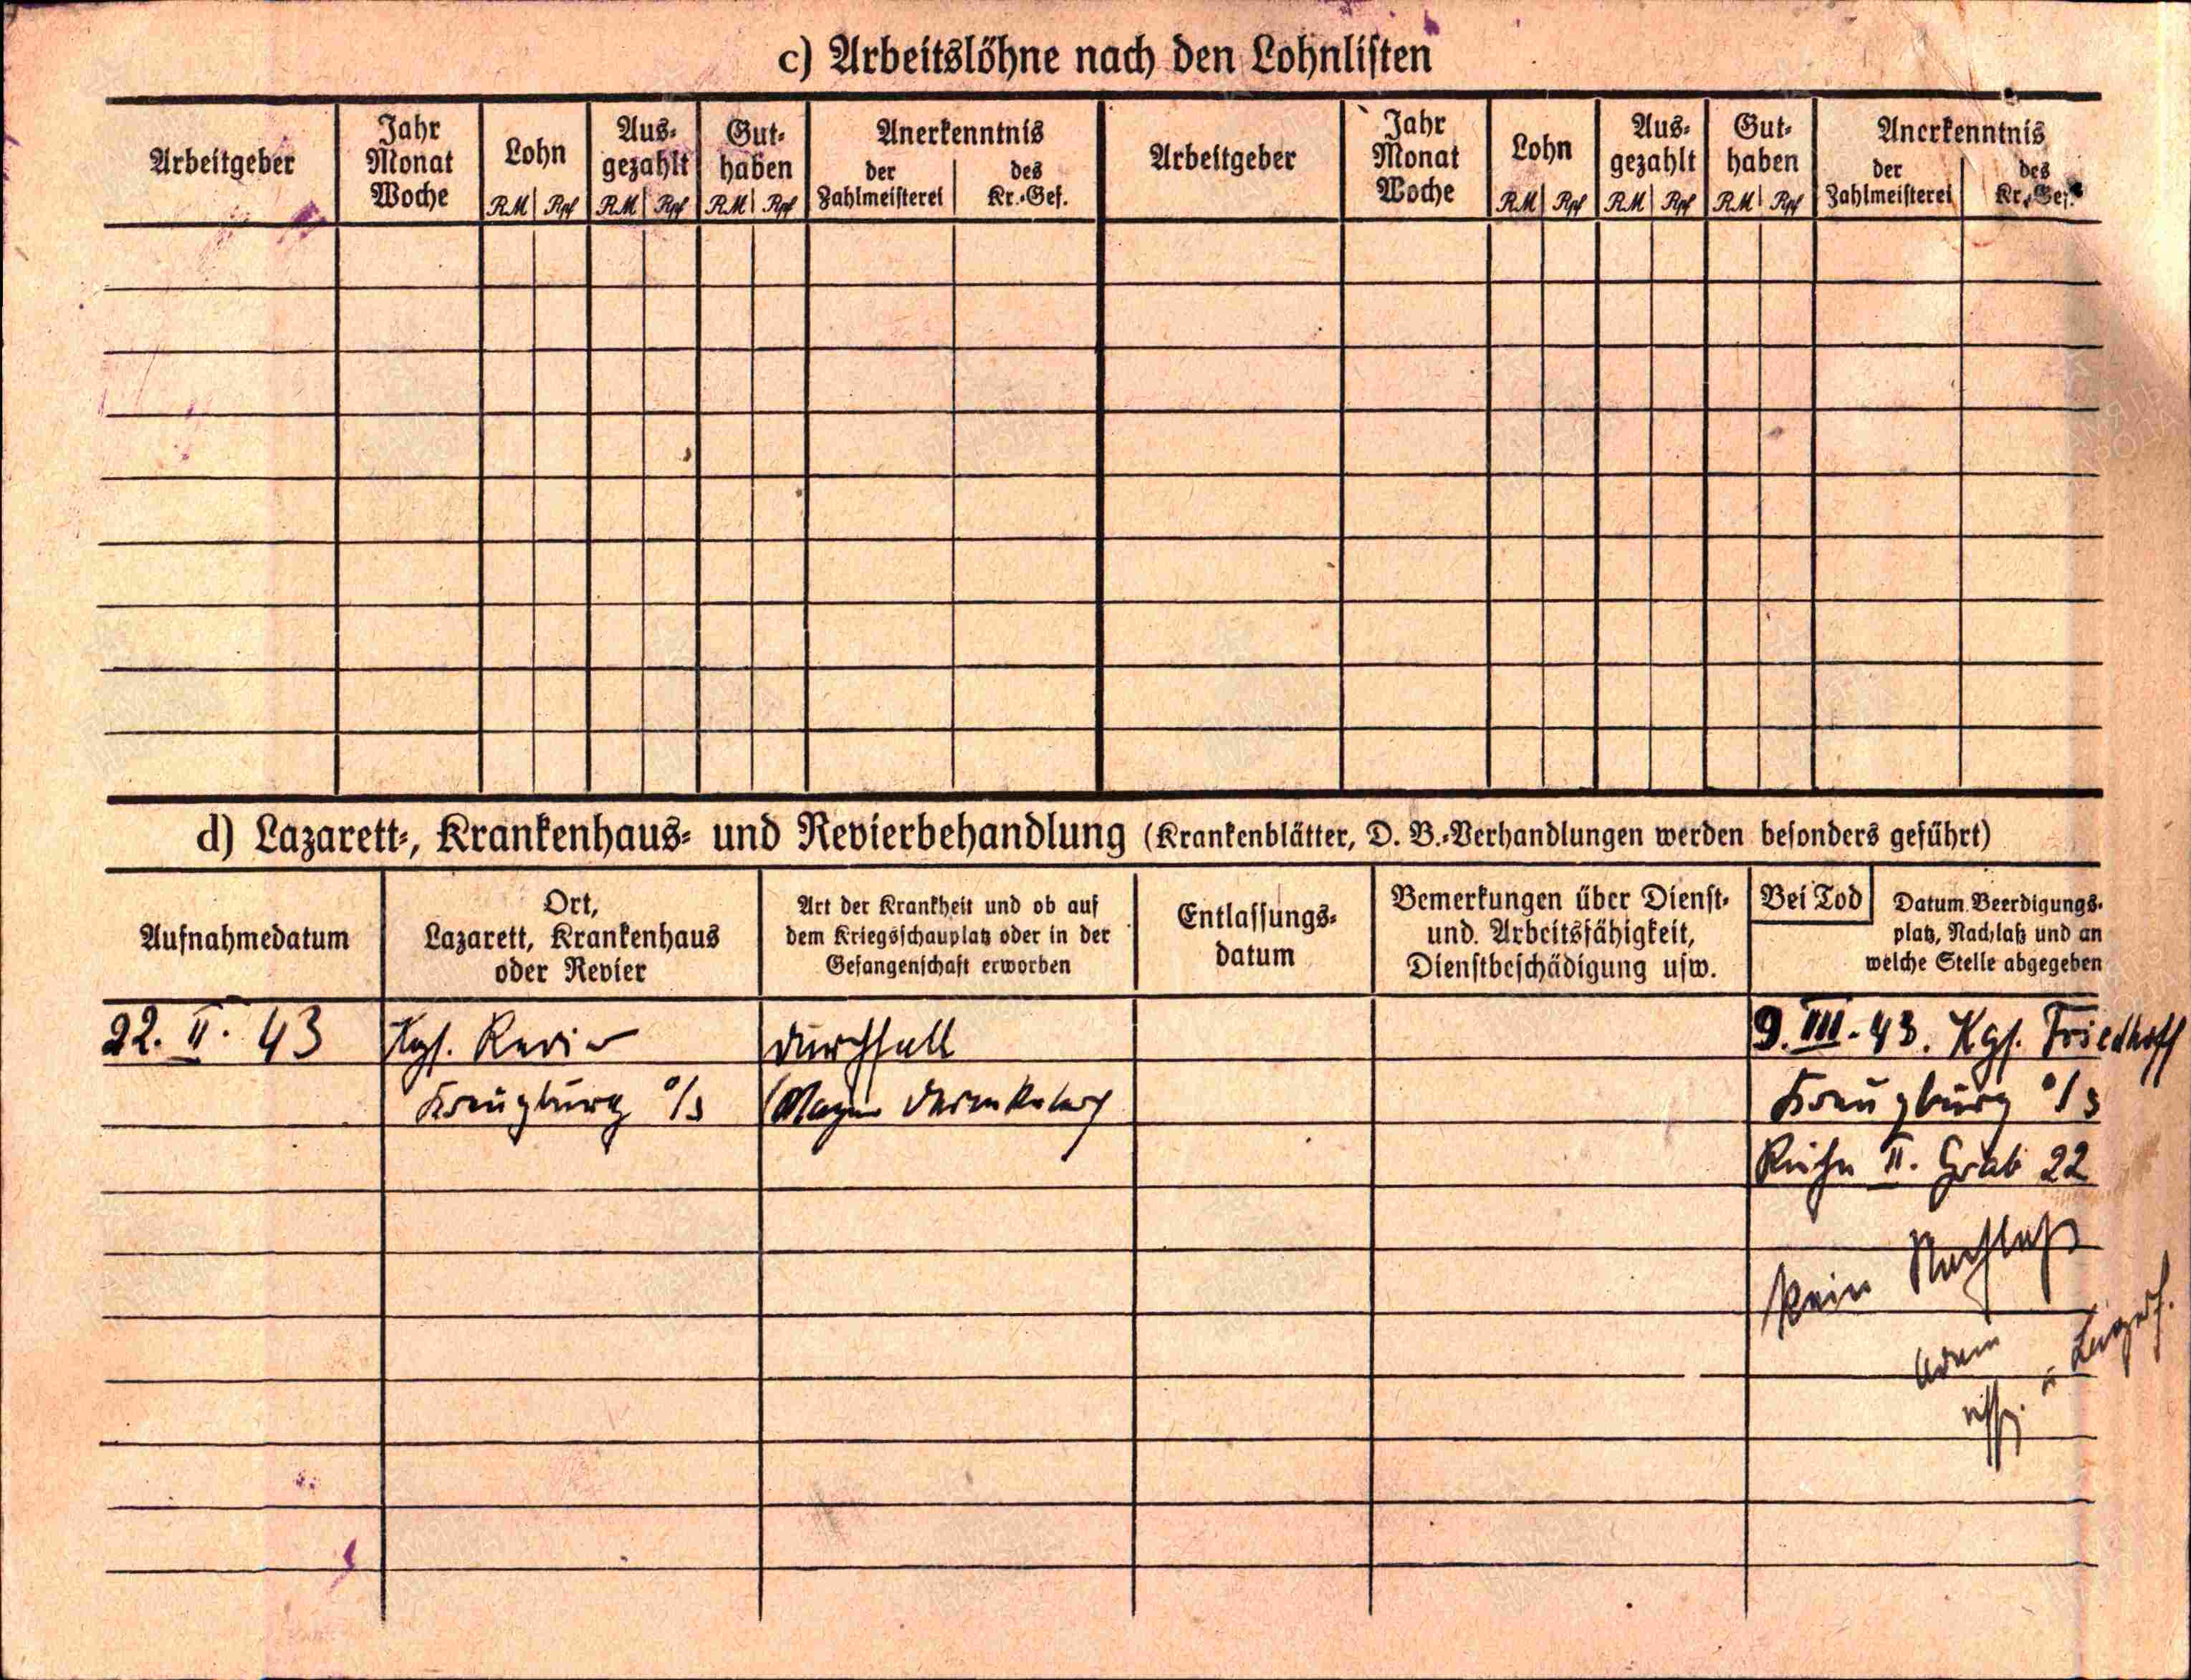 c) Arbeitslöhne nach den Lohnlisten
Arbeitgeber
Jahr
Monat
Woche
Lohn
RM Rpf
Aus-
gezahlt
RM Rpf
Gut-
haben
RM Rpf
Anerkenntnis
der
Zahlmeisterei
des
Kr.-Gef.
Arbeitgeber
Jahr
Monat
Woche
Lohn
RM Rpf
Aus-
gezahlt
RM Rpf
Gut-
haben
RM Rpf
Anerkenntnis
der
Zahlmeisterei
des
Kr.-Gef.
d) Lazarett-, Krankenhaus- und Revierbehandlung (Krankenblätter, D. B.-Verhandlungen werden besonders geführt)
Aufnahmedatum
Ort,
Lazarett, Krankenhaus
oder Revier
Art der Krankheit und ob auf
dem Kriegsschauplatz oder in der
Gefangenschaft erworben
Entlassungs-
datum
Bemerkungen über Dienst-
und. Arbeitsfähigkeit,
Dienstbeschädigung usw.
Bei Tod
Datum Beerdigungs-
platz, Nachlaß und an
welche Stelle abgegeben
22. II. 43
Kgf. Revier
Kreuzburg O/S
Durchfall
9. III. 43. Kgf. Friedhoff
Kreuzburg O/S
Reihe II. Grab 22
kein Nachlaß
Uffz.
ПАМЯТЬ
НАРОДА